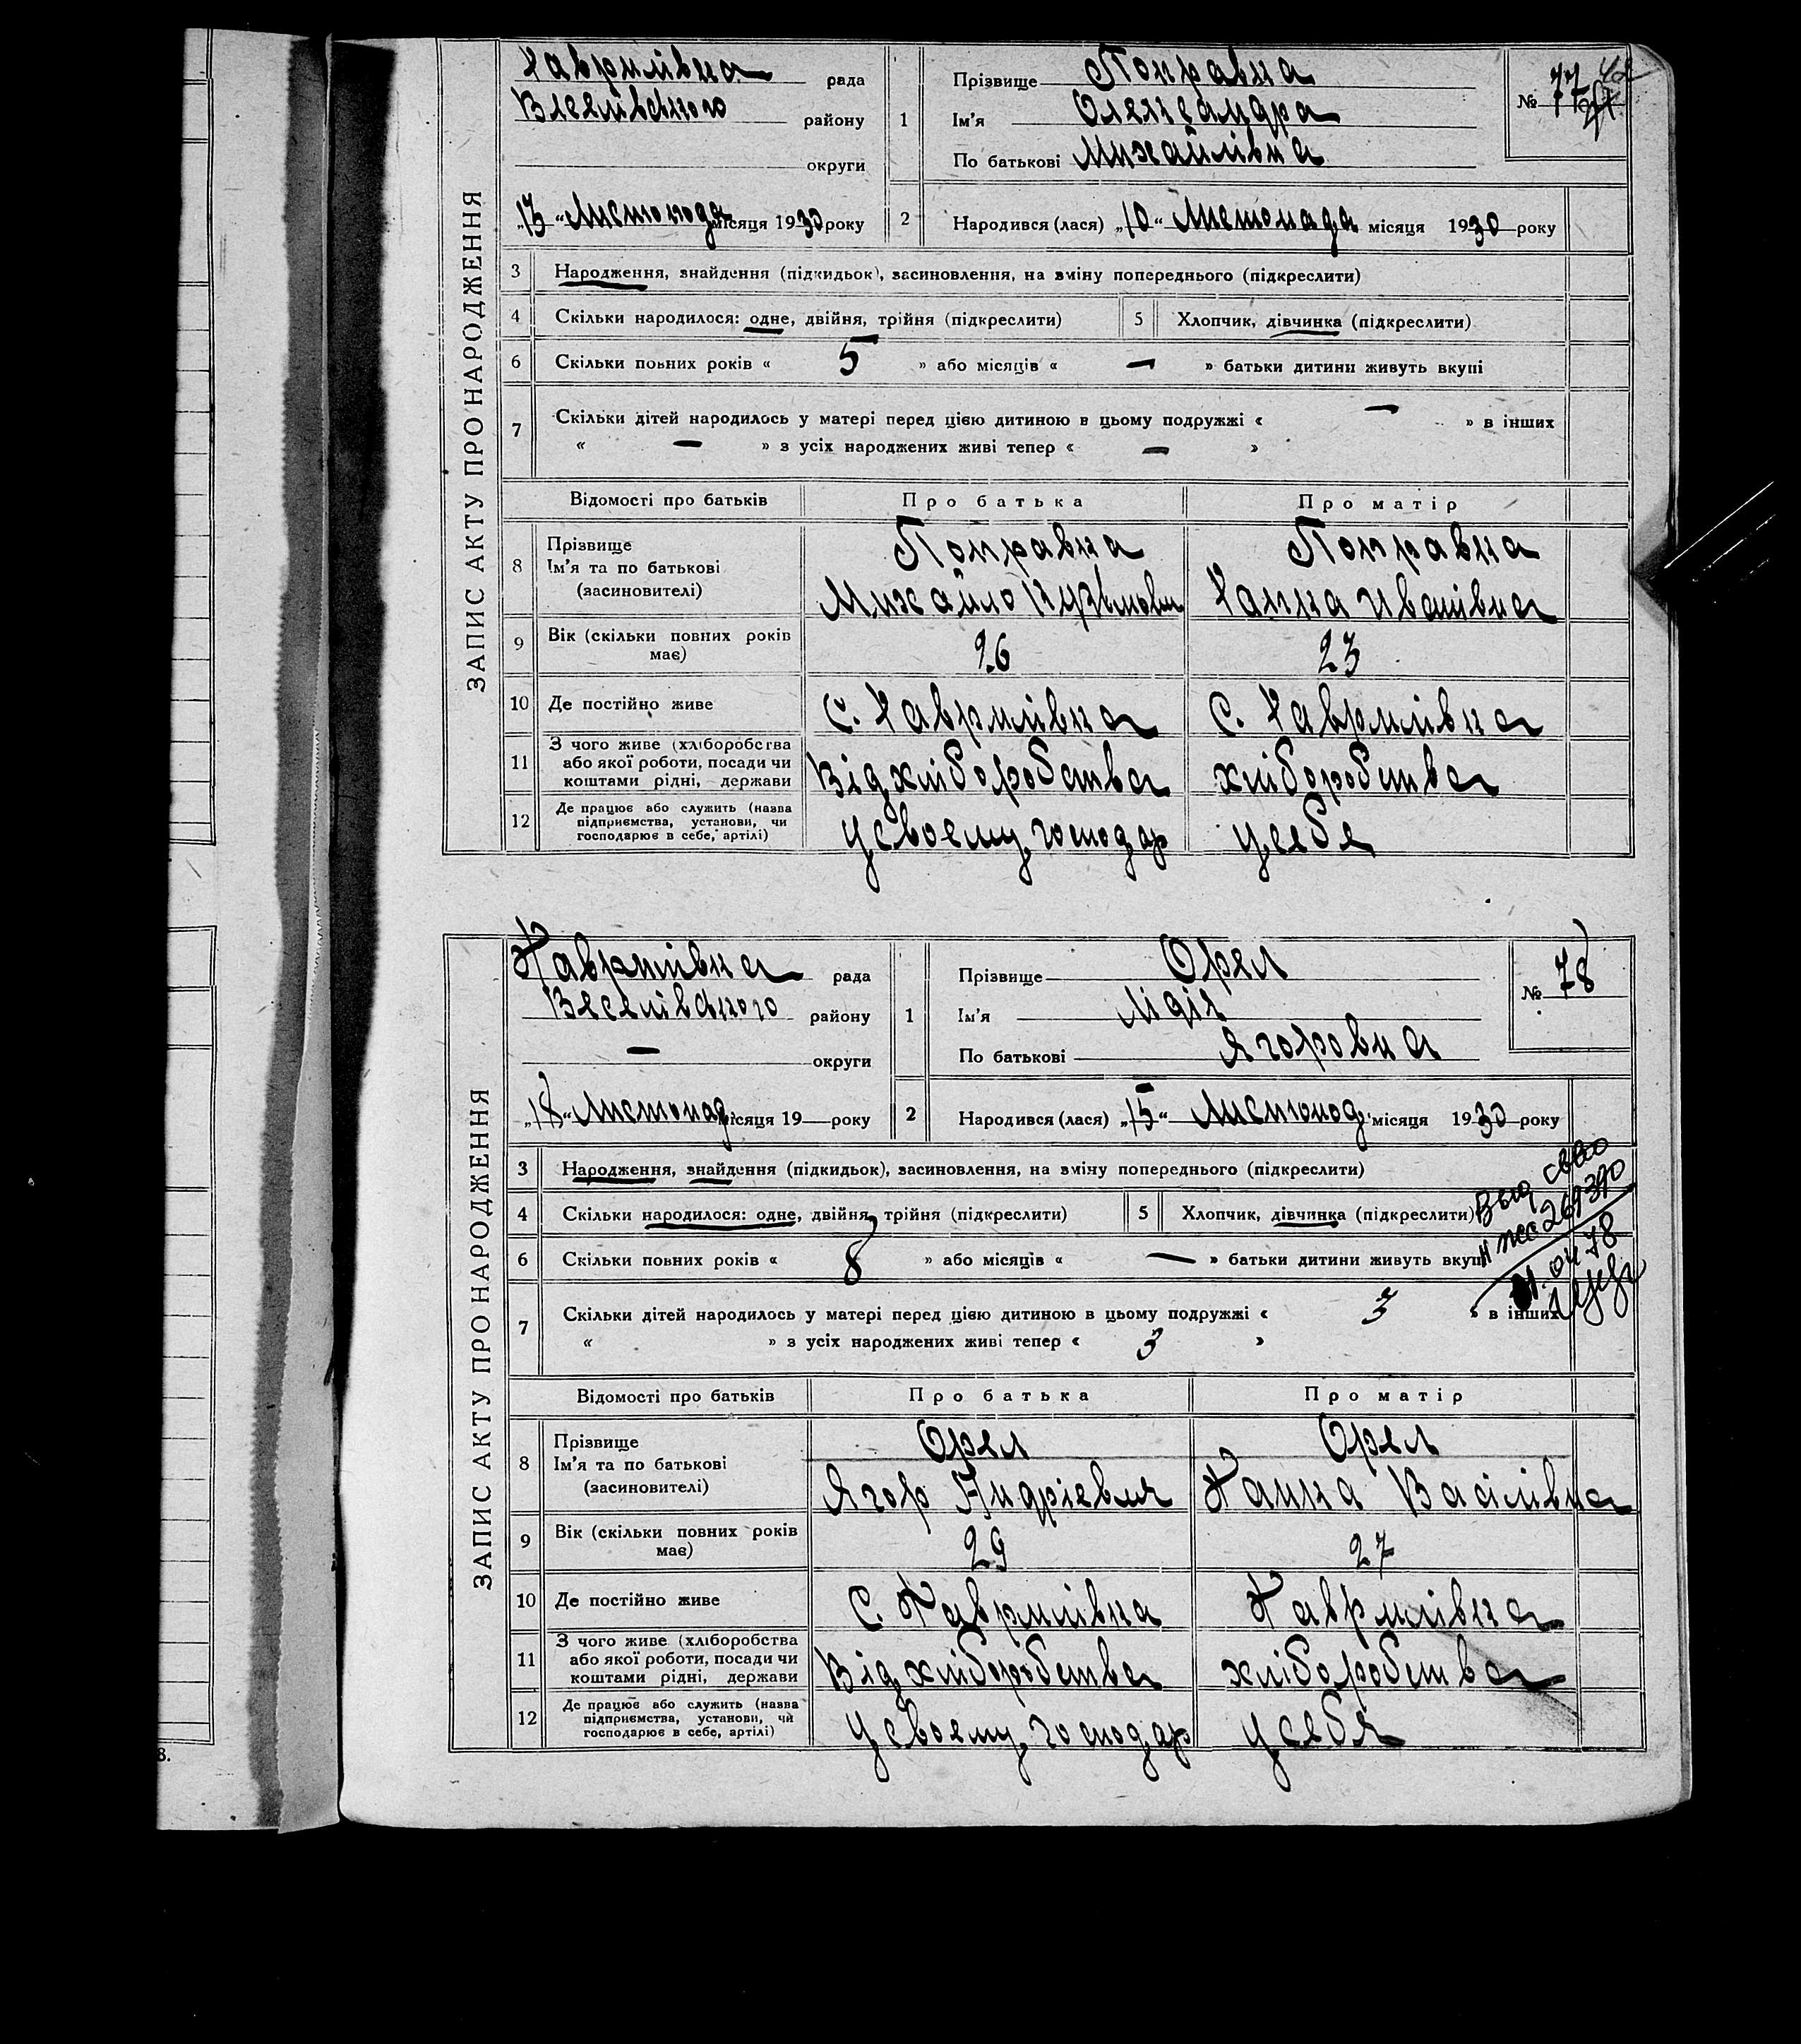 Гаврилівка рада
Веселівського району
округи
„13“ Листопода місяця 1930 року
1
Прізвище Поправка
Ім'я Олександра
По батькові Михайлівна
№ 77
42
2 Народився (лася) „10“ Листопада місяця 1930 року
ЗАПИС АКТУ ПРО НАРОДЖЕННЯ
3 Народження, знайдення (підкидьок), засиновлення, на зміну попереднього (підкреслити)
4 Скільки народилося: одне, двійня, трійня (підкреслити) 5 Хлопчик, дівчинка (підкреслити)
6 Скільки повних років « 5 » або місяців « — » батьки дитини живуть вкупі
7 Скільки дітей народилось у матері перед цією дитиною в цьому подружжі « — » в інших
« — » з усіх народжених живі тепер « — »
Відомості про батьків Про батька Про матір
8 Прізвище Ім'я та по батькові (засиновителі)
Поправка Поправка
Михайло Кузьмович Ганна Иванівна
9 Вік (скільки повних років має) 26 23
10 Де постійно живе С. Гаврилівка С. Гаврилівка
11 З чого живе (хліборобства або якої роботи, посади чи коштами рідні, держави Від хліборобства хліборобства
12 Де працює або служить (назва підприємства, установи, чи господарює в себе, артілі) у своему господар у себя
Гаврилівка рада
Веселівського району
— округи
„18“ Листопад місяця 19— року
1
Прізвище Орел
Ім'я Лідія
По батькові Ягоровна
№ 78
2 Народився (лася) „15“ Листопод місяця 1930 року
ЗАПИС АКТУ ПРО НАРОДЖЕННЯ
3 Народження, знайдення (підкидьок), засиновлення, на зміну попереднього (підкреслити)
4 Скільки народилося: одне, двійня, трійня (підкреслити) 5 Хлопчик, дівчинка (підкреслити)
6 Скільки повних років « 8 » або місяців « — » батьки дитини живуть вкупі
7 Скільки дітей народилось у матері перед цією дитиною в цьому подружжі « 3 » в інших
« » з усіх народжених живі тепер « 3 »
269390
04 78
Відомості про батьків Про батька Про матір
8 Прізвище Ім'я та по батькові (засиновителі)
Орел Орел
Ягор Андріевич Ганна Василівна
9 Вік (скільки повних років має) 29 27
10 Де постійно живе С. Гаврилівка Гаврилівка
11 З чого живе (хліборобства або якої роботи, посади чи коштами рідні, держави Від хліборобства хліборобства
12 Де працює або служить (назва підприємства, установи, чи господарює в себе, артілі) у своему господар у себя
8.